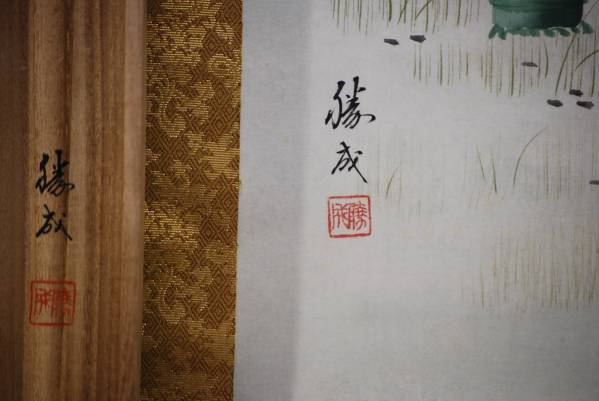 勝成
勝成
勝成
勝成